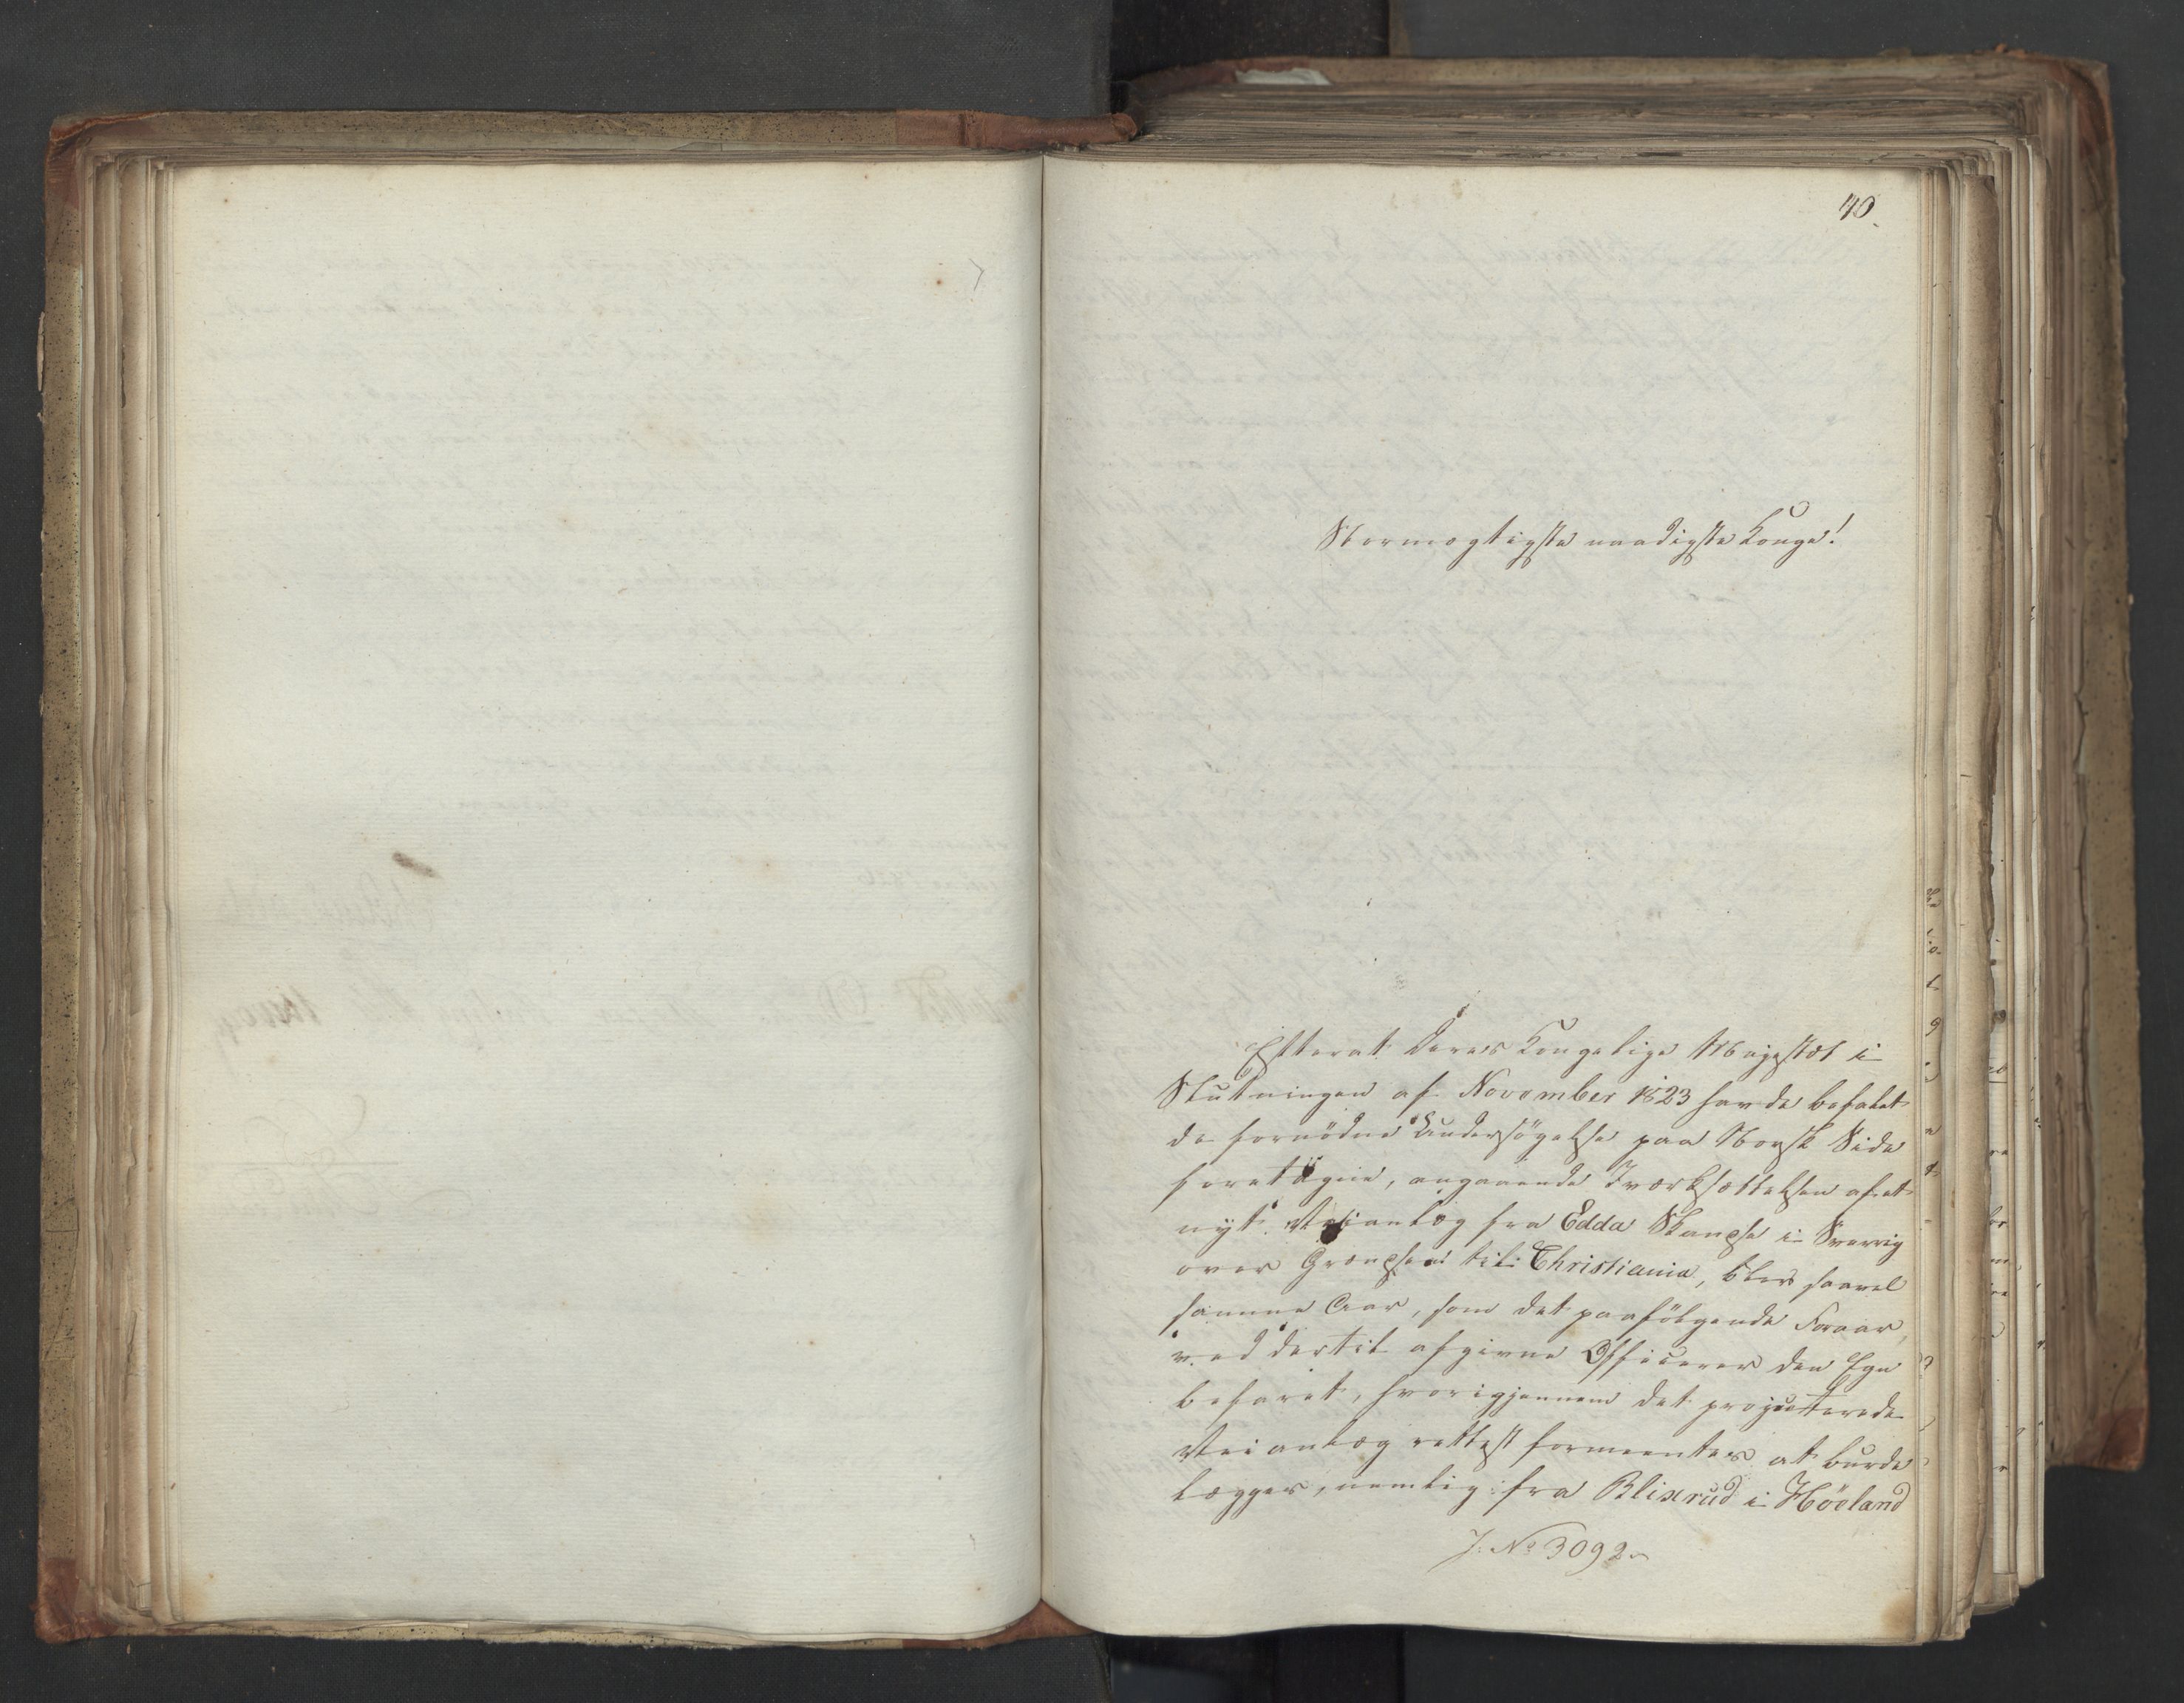 40.
Stormægtigste naadigste Konge!
Efterat Deres Kongelige Majestæt i
Slutningen af November 1823 havde befalet
de fornödne Undersögelse paa Norsk Side
foretagne, angaaende Iværksættelsen af et
nyt Veianlæg fra Edda Skandse i Sverrig
over Grændsen til Christiania, blev saavel
samme Aar, som det paafölgende Foraar,
ved dertil afgivne Officerer den Egn
befaret, hvorigjennem det projecterede
Veianlæg rettest formeentes at burde
lægges, nemlig: fra Blixrud i Höeland
J. No 3092.